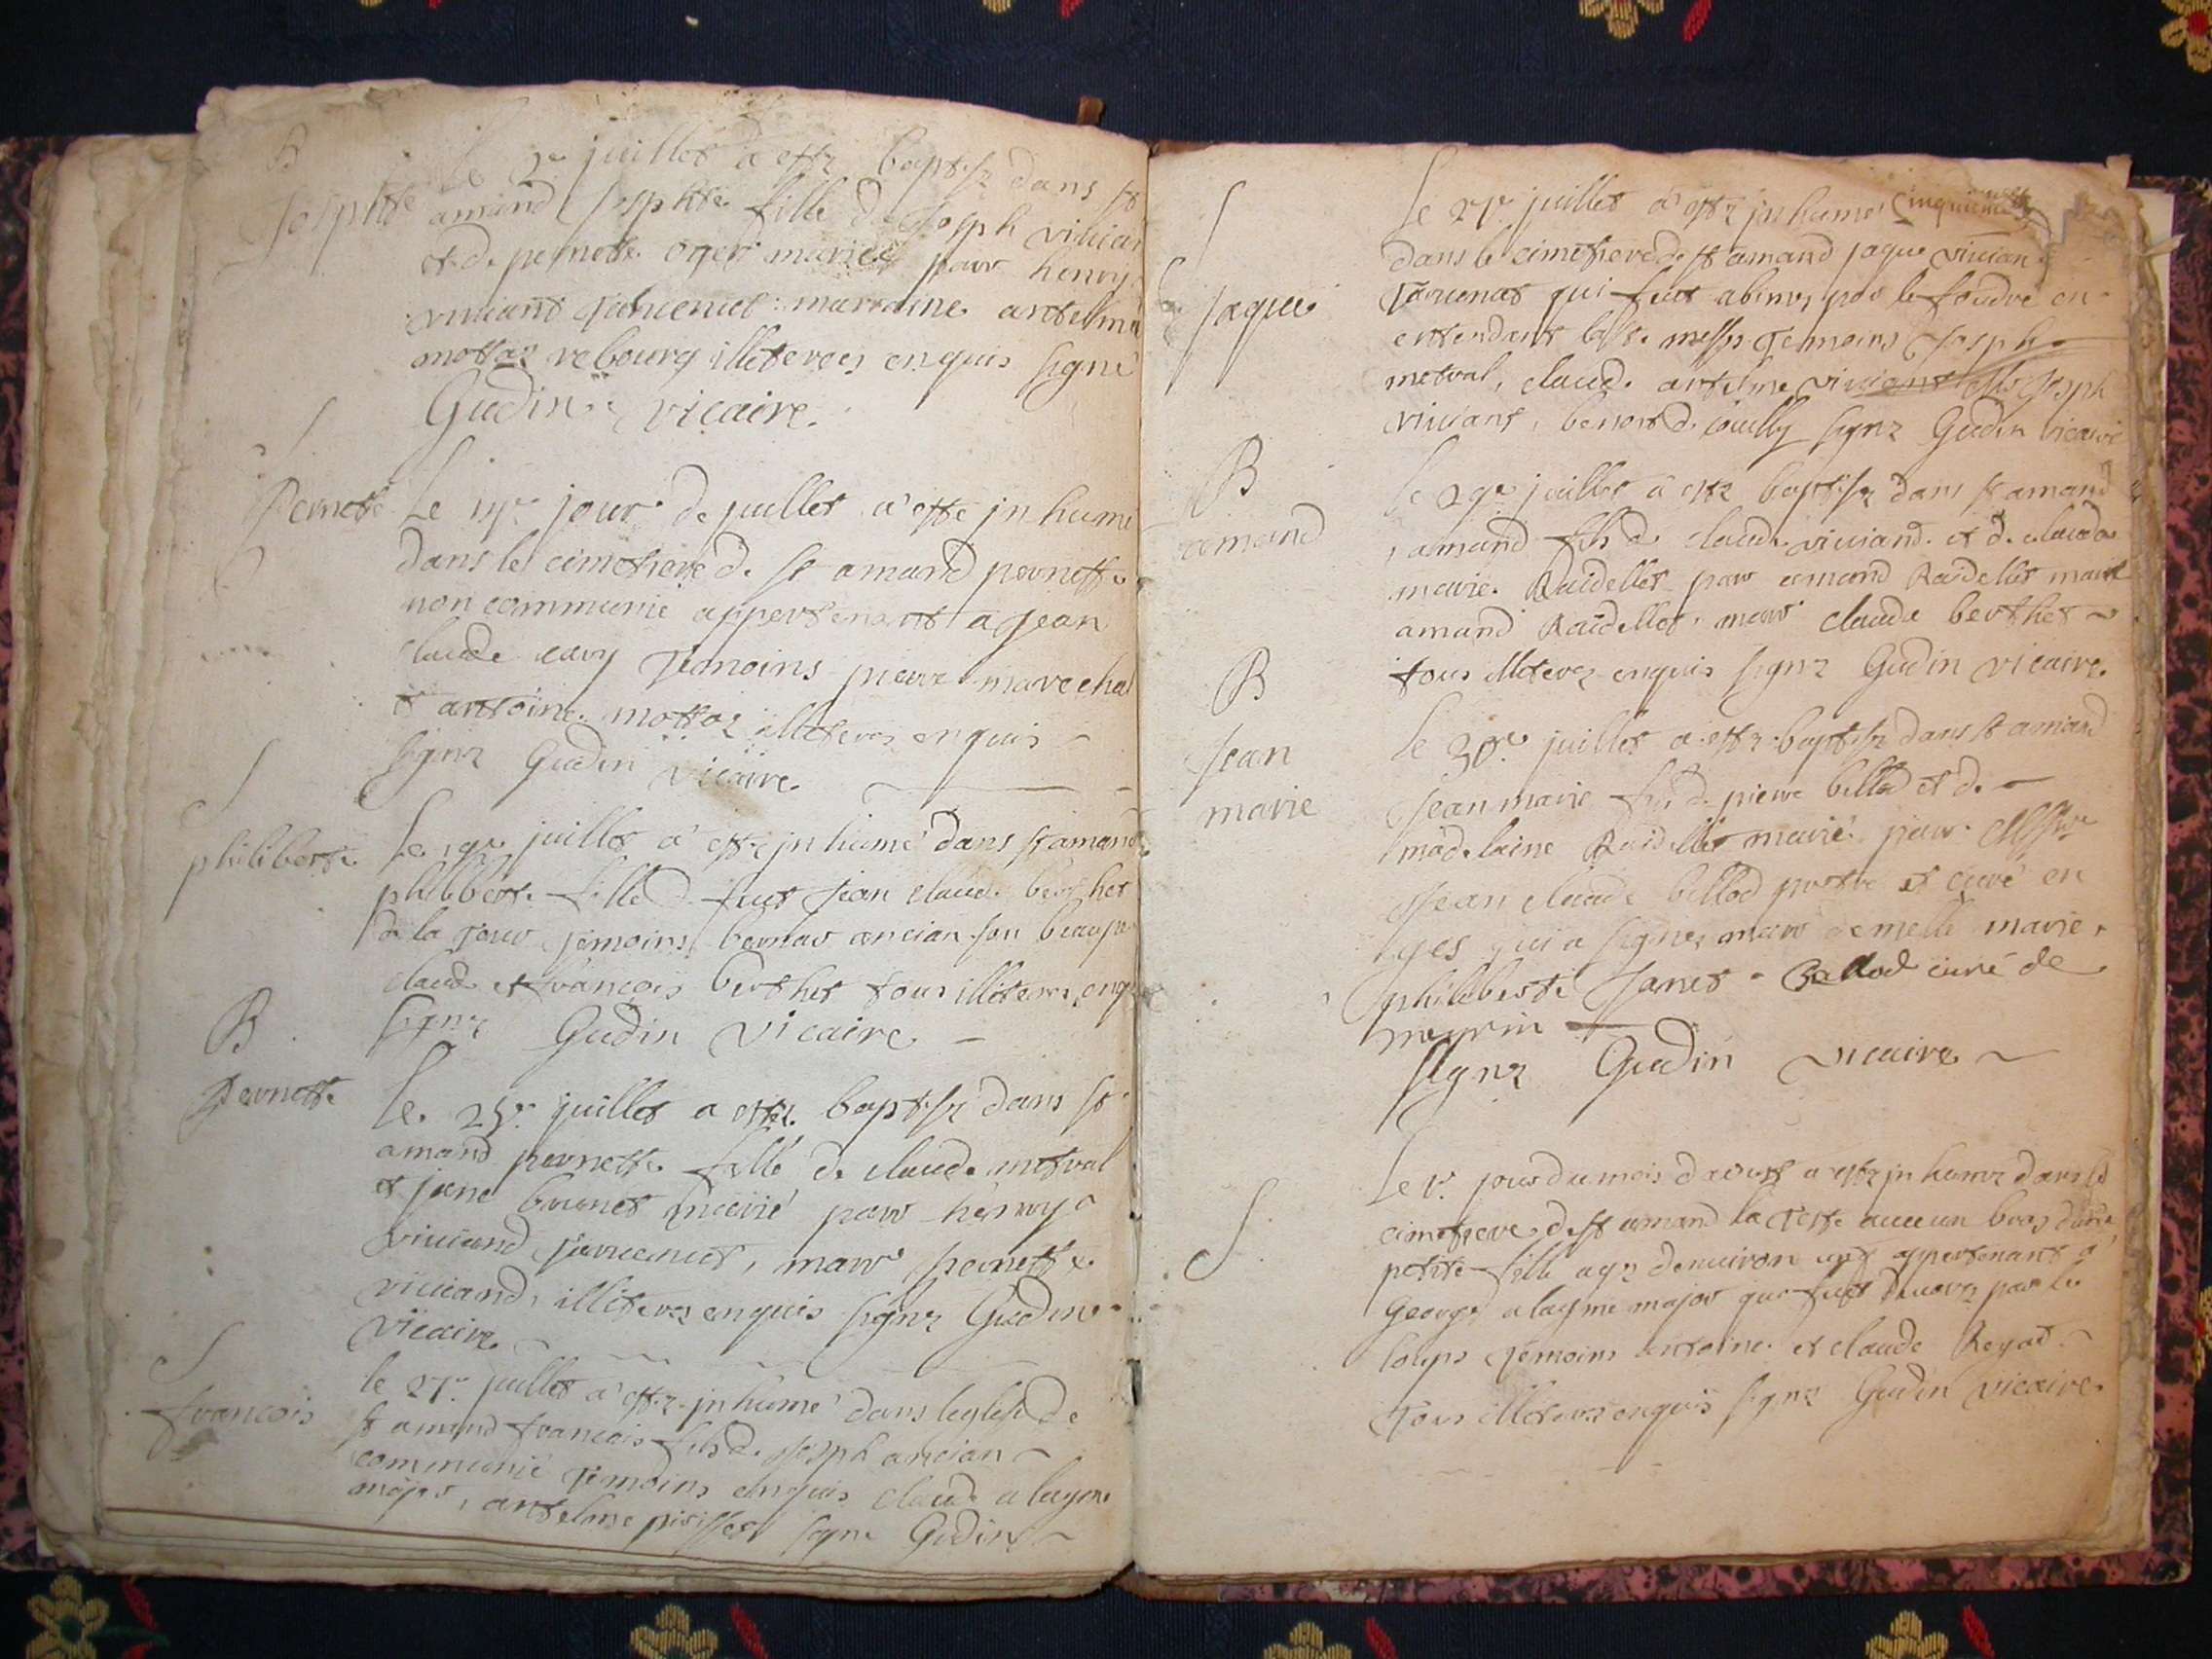 B
Josephte
Le juillet a este baptisé dans st
amand Josephte fille de Joseph viuian
et de pernete mariée parr henry
viuiant Jauuenet : marraine antelma
mottaz rebourg illiterees enquis signé
Gudin vicaire.
S
Pernete
Le jour de juillet a esté jnhumé
dans le cimetiere de st amand pernette
non communié appertenant a Jean
claude cavy Temoins pierre marechal
et antoine mottaz illiteres enquis
signé Gudin vicaire.
S
philiberte
Le juillet a esté jnhumé dans st amand
philiberte fille de fut Jean claude berthet
de la Tour Temoins bernar ancian son beaupe
claude et francois berthet tous illiteres enq
signé Gudin vicaire
B
Pernette
Le 25e juillet a esté baptisé dans st
amand pernette fille de claude metral
et jene brunet mariié parr henry
viuiand Jauuenet, marr pernette
viuiand, illiteres enquis signé Gudin
vicaire
S
francois
le 27e juillet a esté jnhumé dans leglise de
st amand francois fils de Joseph ancian
communié Temoins enquis claude alayme
major, antelme signé Gudin
S
jaque
Le 27e juillet a esté jnhumé
dans le cimetiere de st amand jaque viuian
Jauuenat qui fut abimé par le foudre en
entendant la ste messe Temoins Joseph
metral, claude antelme viuiant Joseph
viuiant, benoit de signé Gudin vicaire
B
amand
le 29e juillet a esté baptisé dans st amand
amand fils de claude viuiand et de clauda
marie Raidellet parr amand Raidellet
amand Raidellet, marr clauda berthet
tous illiterez enquis signé Gudin vicaire.
B
Jean
marie
le 30e juillet a esté baptisé dans st amand
Jean marie fils de pierre billod et de
madelaine Raidellet marié parr. Messire
Jean claude billod pretre et curé en
ges qui a signé, marr demelle marie
philiberte Janet Ballod curé de
meyrin
signé Gudin vicaire
S
Le 1r jour du mois daoust a esté jnhumé dans le
cimetiere de st amand la Teste auec un bras dune
petite fille agée denuiron ans appertenant a
George alayme major que fut deuoré par le
loups Temoins antoine et claude Reyad
Tous illiterez enquis signé Gudin vicaire.